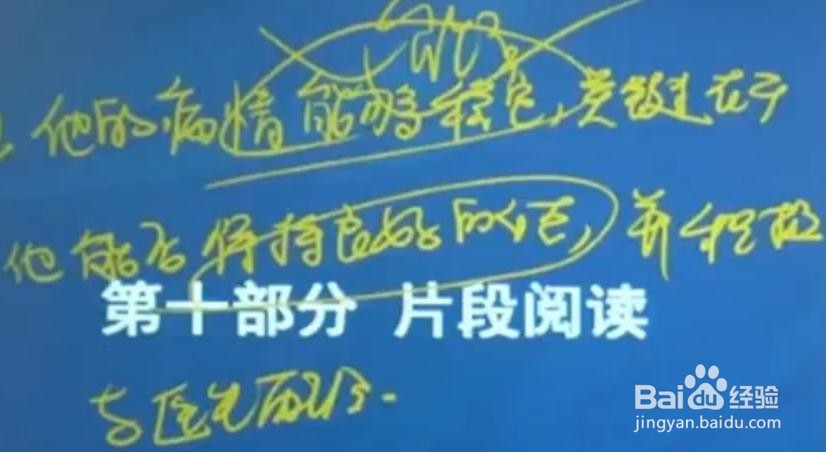 他的病情能够稳定,关键在于
他能否保持良好的心态,并积极
第十部分 片段阅读
与医生配合.
Baidu经验
jingyan.baidu.com